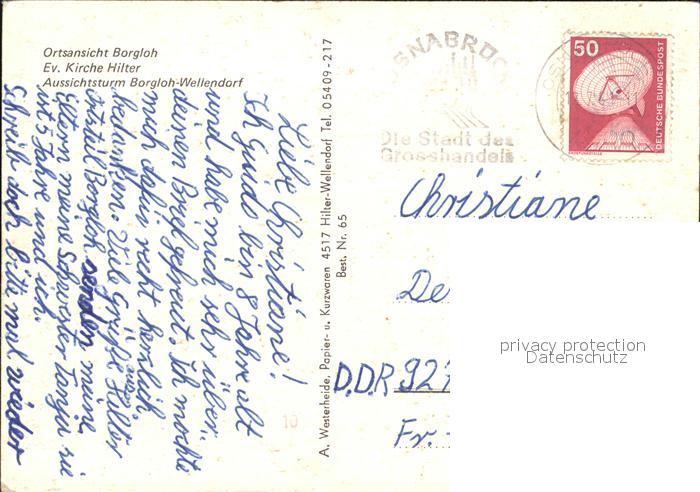 Ortsansicht Borgloh
Ev. Kirche Hilter
Aussichtsturm Borgloh-Wellendorf
Liebe Christiane!
Ich Guido bin 8 Jahre alt
und habe mich sehr über
deinen Brief gefreut. Ich möchte
mich dafür recht herzlich
bedanken. Viele Grüße aus Hilter
Borgloh senden meine
Eltern meine Schwester Tanja sie
ist 5 Jahre und ich.
Schreib doch bitte mal wieder
A. Westerheide, Papier- u. Kurzwaren 4517 Hilter-Wellendorf Tel. 05409-217
Best. Nr. 65
10
OSNABRÜCK
Die Stadt des
Grosshandels
50
DEUTSCHE BUNDESPOST
Christiane
De
DDR 921
Fr.
privacy protection
Datenschutz